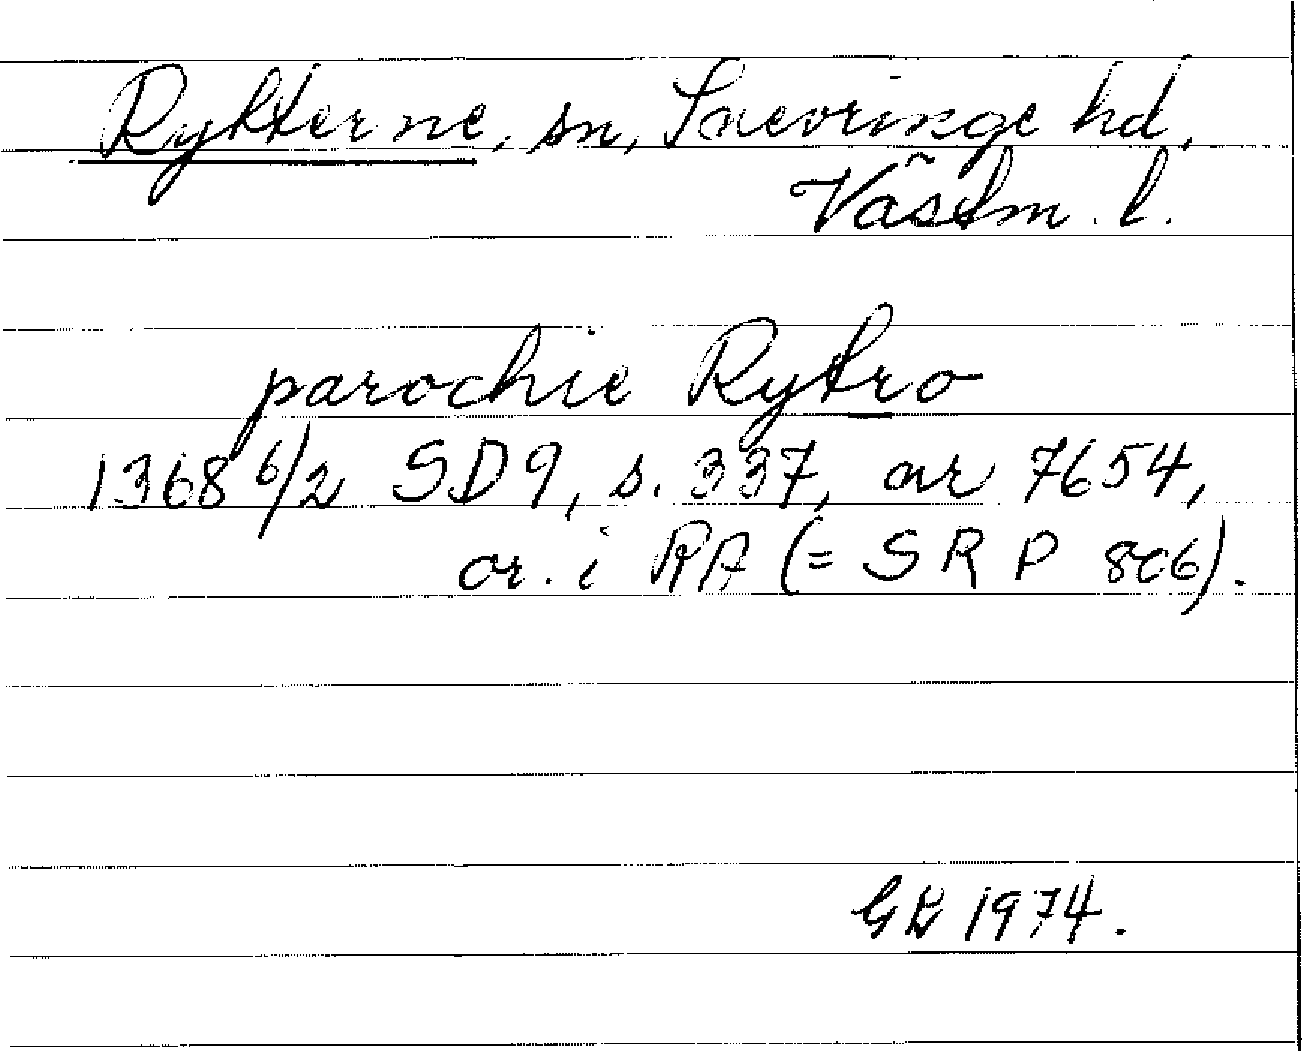 Rytterne, sn, Snevringe hd,
Västm. l.
parochie Rytro
1368 6/2 SD9, s. 337, nr 7654,
or. i RA (= SRP 806).
GB 1974.